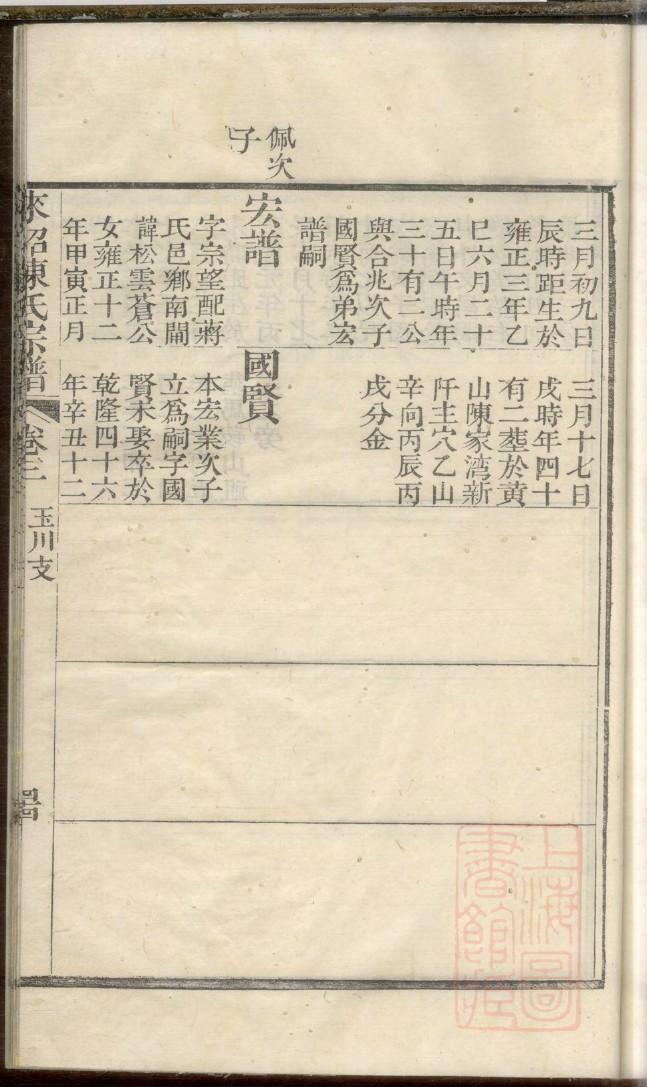 佩次
子
三月初九日
辰時距生於
雍正三年乙
巳六月二十
五日午時年
三十有二公
與合兆次子
國賢爲弟宏
譜嗣
宏譜
字宗望配蔣
氏邑鄉南閶
諱松雲蒼公
女雍正十二
年甲寅正月
三月十七日
戌時年四十
有二塟於黄
山陳家湾新
阡主穴乙山
辛向丙辰丙
戌分金
國賢
本宏業次子
立爲嗣字國
賢未娶卒於
乾隆四十六
年辛丑十二
陳氏宗譜
卷三
玉川支
上海圖
書館藏